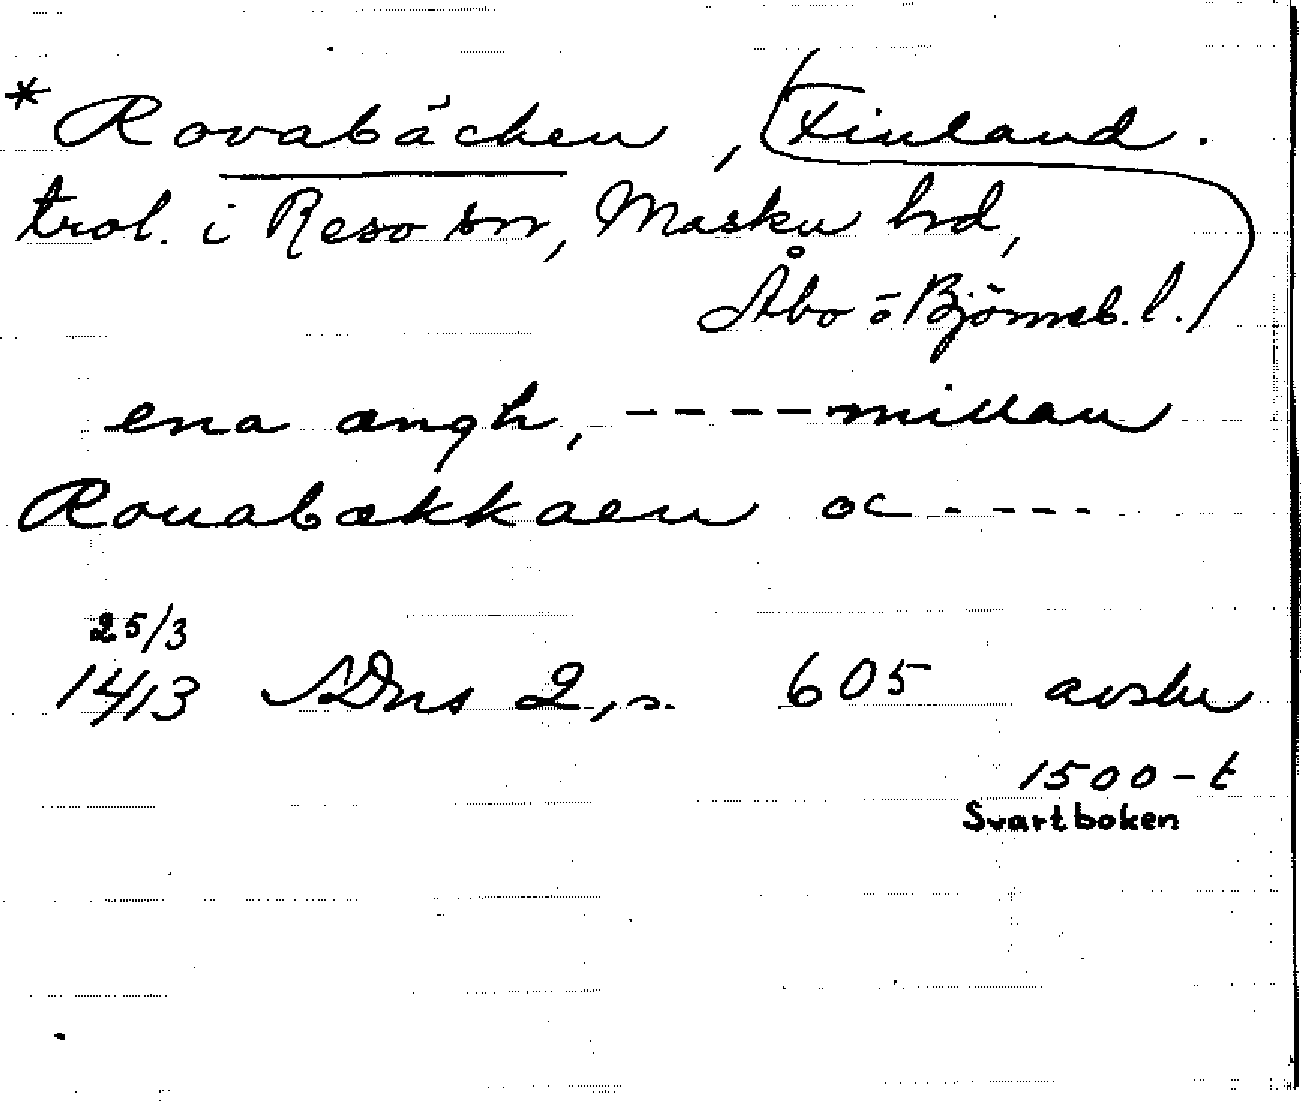 * Rovabäcken, Finland.
trol. i Reso sn, Masku hd,
Åbo o Björneb. l.
ena ængh, ---- millan
Rouabækkaen oc ----
25/3
14/13 SDns 2, s. 605 avskr
1500-t
Svartboken